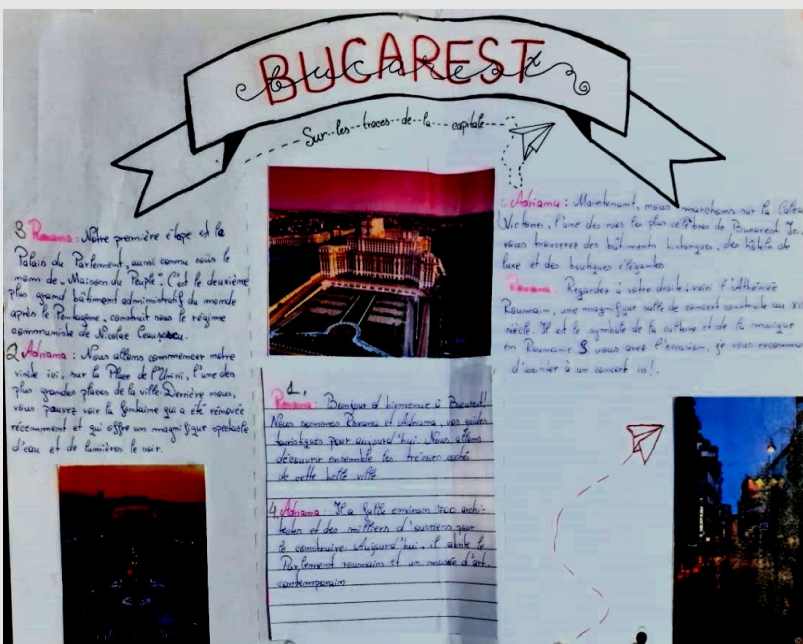 BUCAREST
Bucarest
Sur les traces de la capitale
3 Roxana: Notre première étape est la
Palais du Parlement, aussi connu sous le
nom de "Maison du Peuple". C'est le deuxième
plus grand bâtiment administratif du monde
après le Pentagone, construit sous le régime
communiste de Nicolae Ceaușescu.
2 Adriana: Nous allons commencer notre
visite ici, sur la Place de l'Unirii, l'une des
plus grandes places de la ville. Derrière nous,
vous pouvez voir la fontaine qui a été rénovée
récemment et qui offre un magnifique spectacle
d'eau et de lumières le soir.
1.
Roxana: Bonjour et bienvenue à Bucarest!
Nous sommes Roxana et Adriana, vos guides
touristiques pour aujourd'hui. Nous allons
découvrir ensemble les trésors
de cette belle ville.
4. Adriana: Il a fallu environ 700 archi-
tectes et des milliers d'ouvriers pour
le construire. Aujourd'hui, il abrite le
Parlement roumain et un musée d'art
contemporain
Adriana: Maintenant, nous marchons sur la Calea
Victoriei, l'une des rues les plus célèbres de Bucarest. Ici,
vous trouverez des bâtiments historiques, des hôtels de
luxe et des boutiques élégantes
Roxana: Regardez à votre droite: voici l'Athénée
Roumain, une magnifique salle de concert construite au
siècle. Il est le symbole de la culture et de la musique
en Roumanie. Si vous avez l'occasion, je vous
d'assister à un concert ici!